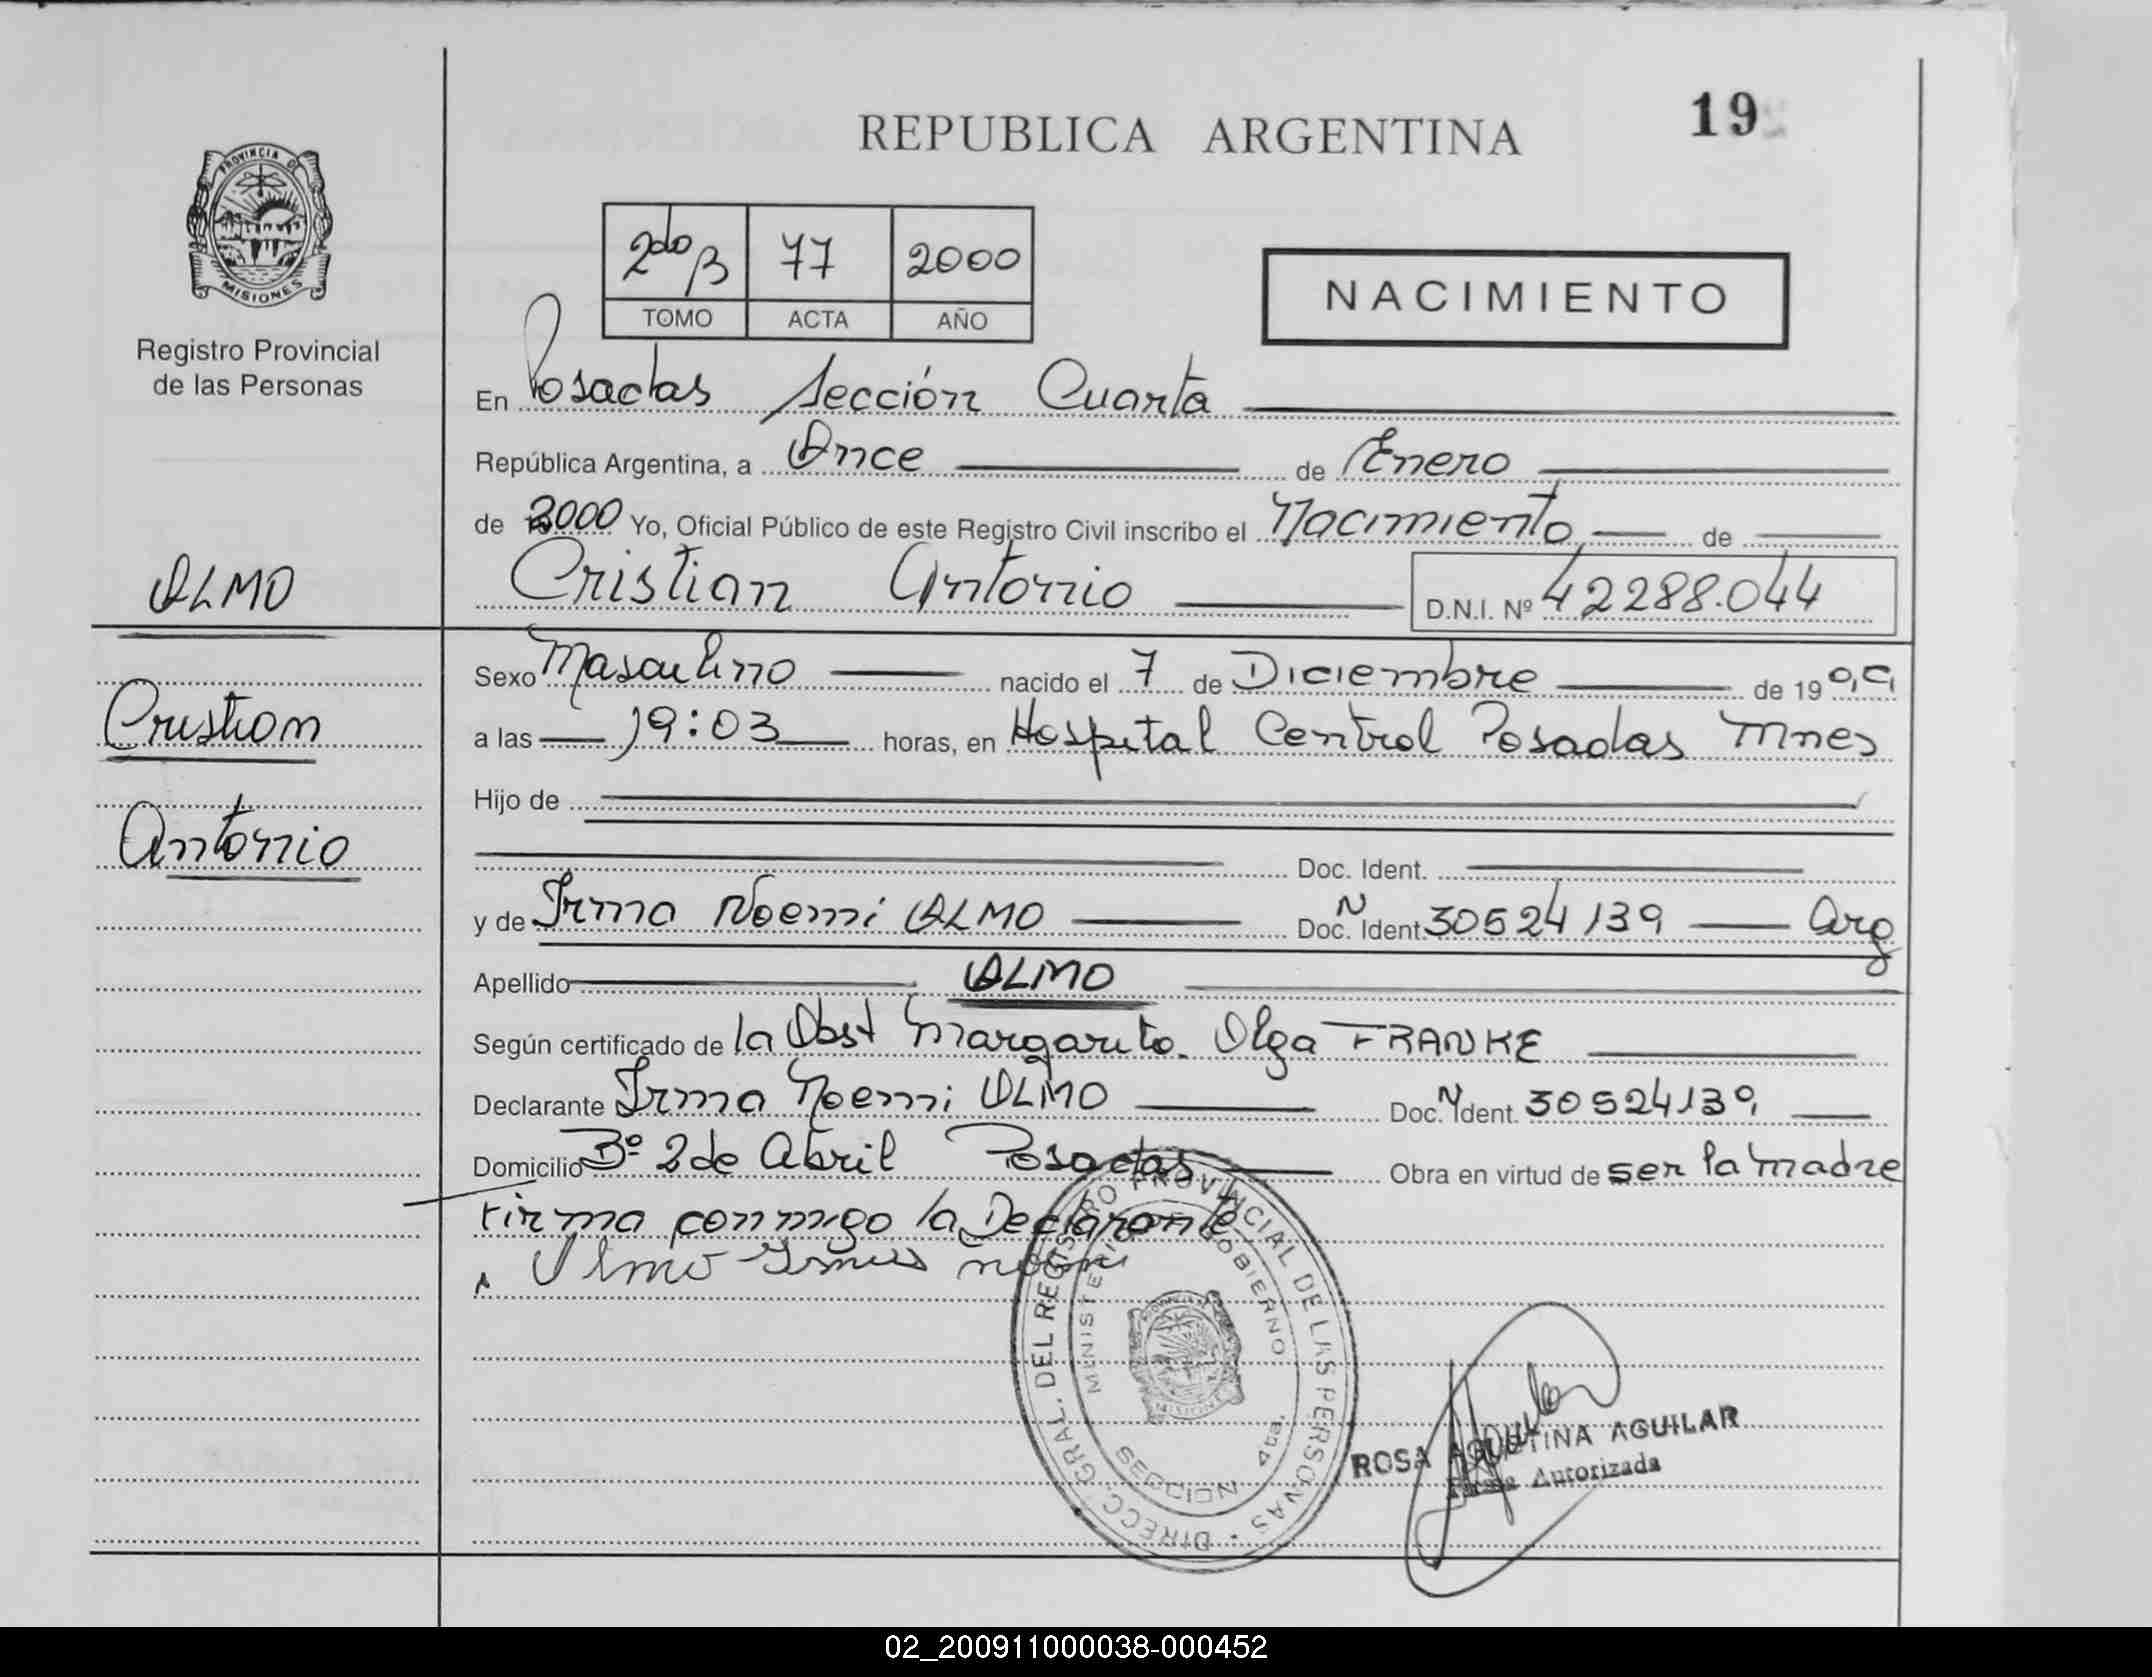 REPUBLICA ARGENTINA
19
PROVINCIA DE
MISIONES
Registro Provincial
de las Personas
2do B 77 2000
TOMO ACTA AÑO
NACIMIENTO
En Posadas Sección Cuarta
República Argentina, a Once de Enero
de 2000 Yo, Oficial Público de este Registro Civil inscribo el Nacimiento de
Cristian Antonio D.N.I. Nº 42288.044
OLMO
Cristian
Antonio
Sexo Masculino nacido el 7 de Diciembre de 1999
a las 19:03 horas, en Hospital Central Posadas Mnes
Hijo de
Doc. Ident.
y de Irma Noemi OLMO Doc. N Ident. 30524139 Arg
Apellido OLMO
Según certificado de la Obst Margarita Olga FRANKE
Declarante Irma Noemi OLMO Doc. N Ident. 30524139
Domicilio Bº 2 de Abril Posadas Obra en virtud de ser la madre
firma conmigo la Declarante
Olmo Irma Noemi
DIRECC. GRAL. DEL REGISTRO PROVINCIAL DE LAS PERSONAS
MINISTERIO DE GOBIERNO
SECCION 4ta.
MISIONES
ROSA AGUSTINA AGUILAR
Firma Autorizada
02_200911000038-000452